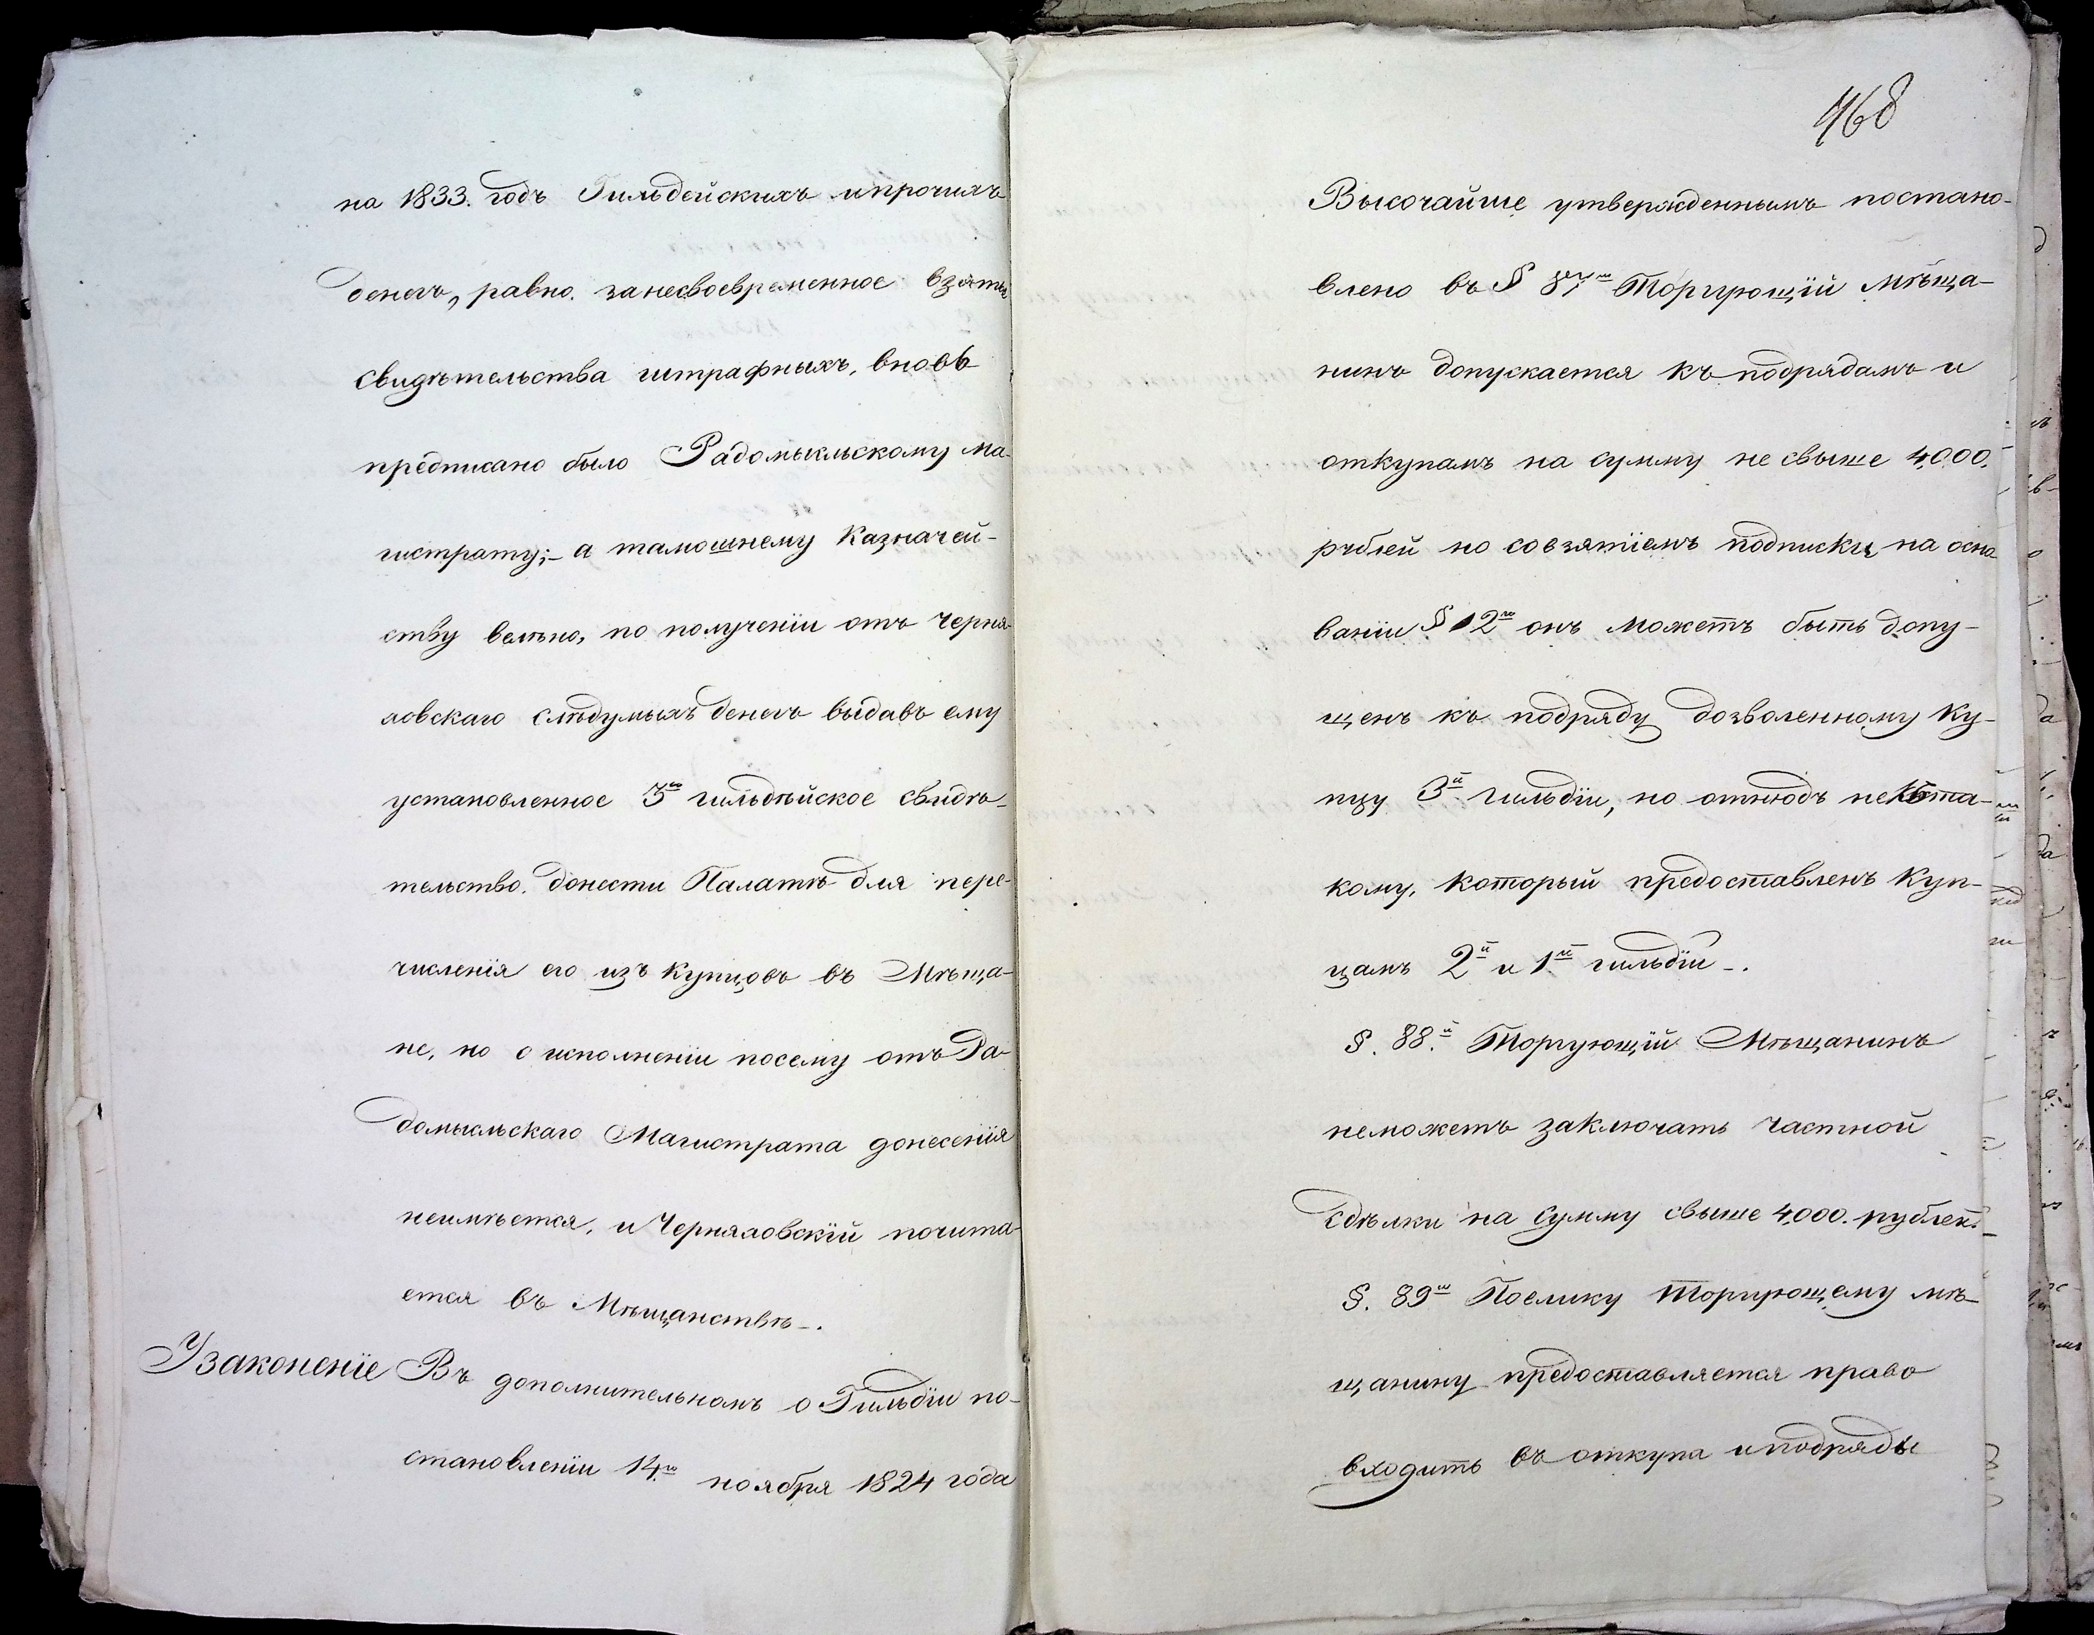 на 1833. годъ Гильдейскихъ и прочихъ
денегъ, равно. за несвоевременное взятье
свидѣтельства штрафныхъ, вновь
предписано было Радомыльскому ма-
гистрату;- а тамошнему Казначей-
ству велѣно, по полученіи отъ Черня-
ховскаго слѣдуемыхъ денегъ выдавъ ему
установленное 3й гильдѣйское свидѣ-
тельство. донести Палатѣ для пере-
численія его изъ Купцовъ въ Мѣща-
не, но о исполненіи посему отъ Ра-
домысльскаго Магистрата донесенія
неимѣется, и Черняховскій почита-
ется въ Мѣщанствѣ-.
Узаконеніе Въ дополнительномъ о Гильдіи по-
становленіи 14го ноября 1824 года
468
Высочайше утвержденнымъ постано-
влено въ § 87мъ Торгующій мѣща-
нинъ допускается къ подрядамъ и
откупамъ на сумму не свыше 4,000.
рублей но со взятіемъ подписки, на осно
ваніи § 12го онъ можетъ быть допу-
щенъ къ подряду дозволенному Ку-
пцу 3й гильдіи, но отнюдь не къ та-
кому, который предоставленъ Куп-
цамъ 2й и 1й гильдіи-.
§. 88.й Торгующій Мѣщанинъ
неможетъ заключать частной
сдѣлки на сумму свыше 4,000. рублей.
§. 89й Поелику торгующему мѣ-
щанину предоставляется право
входить въ откупа и подряды